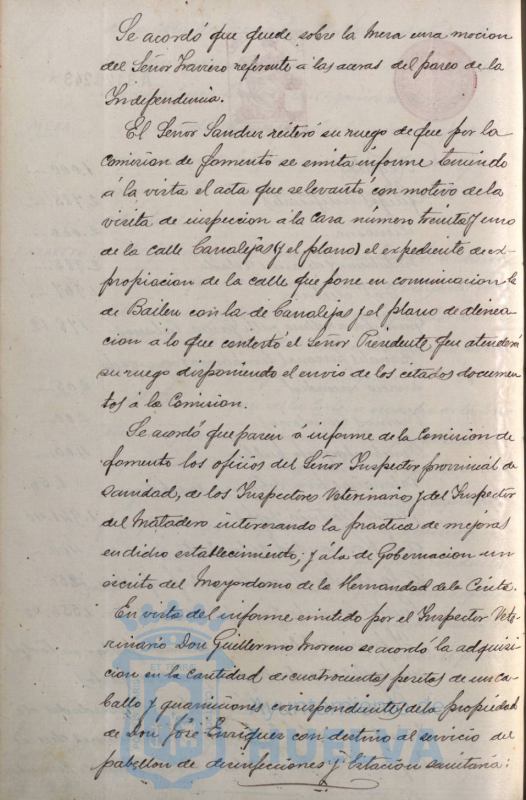 Se acordó que quede sobre la mesa una mocion
del Señor Traviero referente á las aceras del paseo de la
Independencia.
El Señor Sandur reiteró su ruego de que por la
Comision de fomento se emita informe teniendo
á la vista el acta que se levantó con motivo de la
visita de inspeccion á la casa número treinta y uno
de la calle Canalejas (y el plano) el expediente de ex-
propiacion de la calle que pone en comunicacion la
de Bailen con la de Canalejas y el plano de alinea-
cion á lo que contestó el Señor Presidente que atenderá
su ruego disponiendo el envio de los citados documen-
tos á la Comision.
Se acordó que pasen á informe de la Comision de
fomento los oficios del Señor Inspector provincial de
sanidad, de los Inspectores Veterinario y del Inspector
del Matadero interesando la practica de mejoras
en dicho establecimiento; y á la de Gobernacion un
escrito del Mayordomo de la Hermandad de la Cinta.
En vista del informe emitido por el Inspector Vete-
rinario Don Guillermo Moreno se acordó la adquisi-
cion en la cantidad de cuatrocientas pesetas de un ca-
ballo y guarniciones correspondientes de la propiedad
de Don José Enriquez con destino al servicio del
pabellon de desinfecciones y Estacion sanitaria.
HUELVA